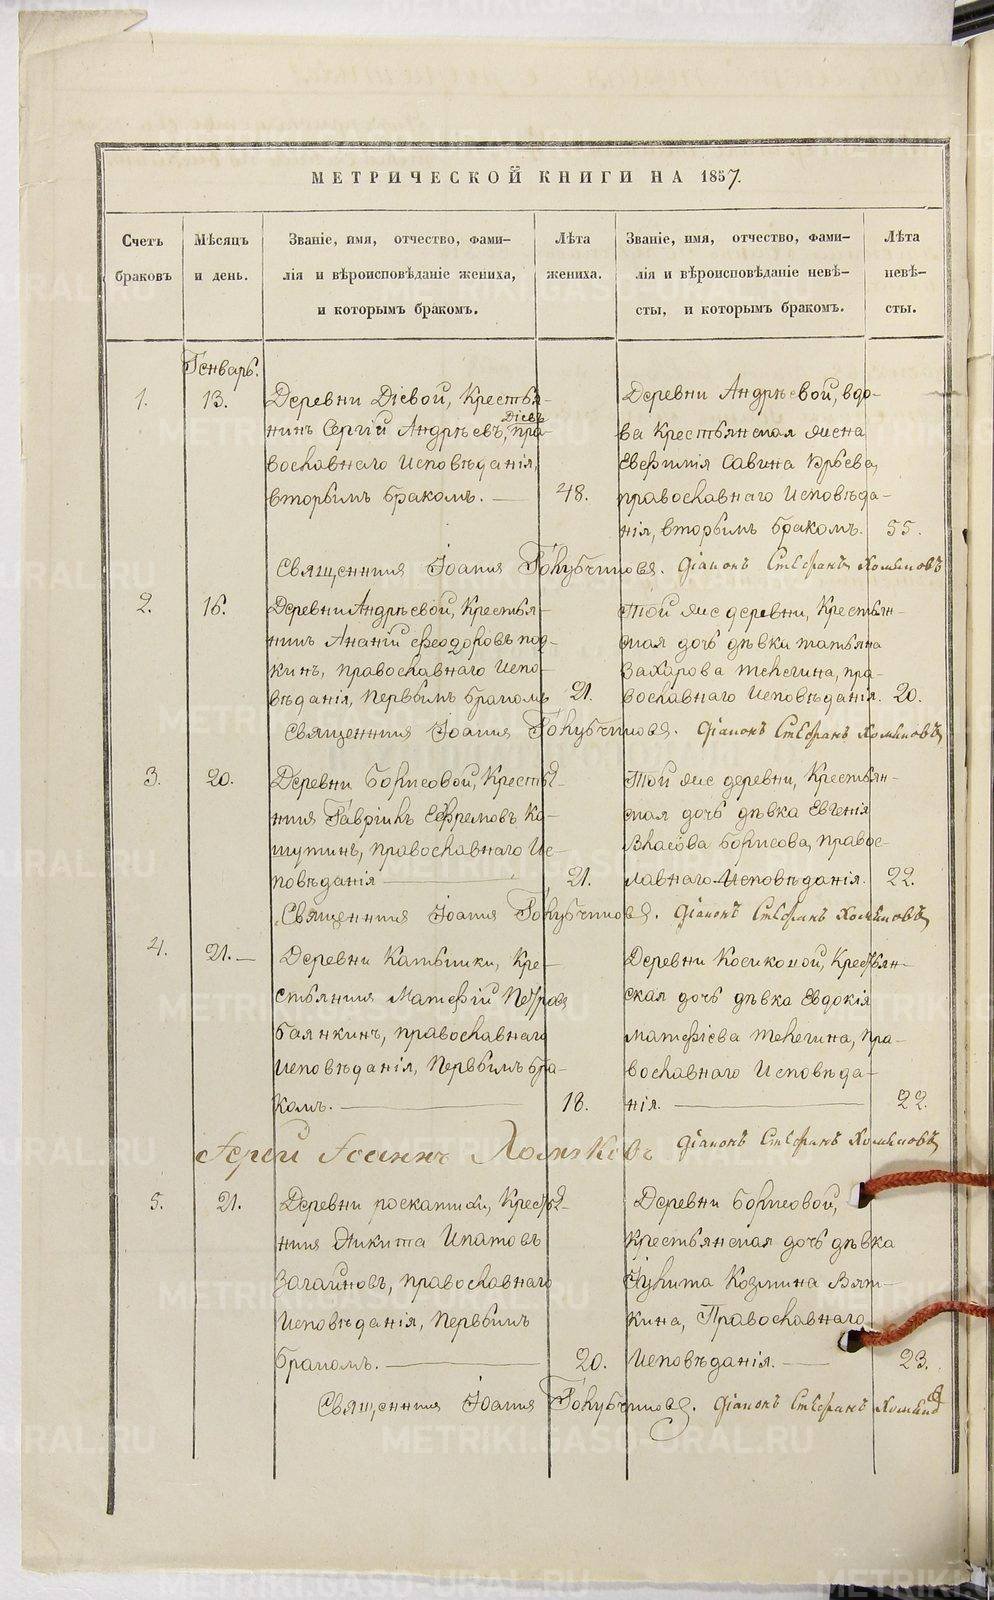 МЕТРИЧЕСКОЙ КНИГИ НА 1857.
Счетъ браковъ
Мѣсяцъ и день.
Званіе, имя, отчество, фами-
лія и вѣроисповѣданіе жениха,
и которымъ бракомъ.
Лѣта жениха.
Званіе, имя, отчество, фами-
лія и вѣроисповѣданіе невѣ-
сты, и которымъ бракомъ.
Лѣта невѣ-
сты.
Генварь.
1.
13.
Деревни Діевой, Крестья-
нинъ Сергій Андрѣевъ Діевъ, пра-
вославнаго Исповѣданія,
вторымъ бракомъ.
48.
Деревни Андрѣевой, вдо-
ва Крестьянская жена
Евѳимія Савина Юрьева,
православнаго Исповѣда-
нія, вторымъ бракомъ.
55.
Священникъ Іоаннъ Голубчиковъ. Діаконъ Стефанъ Хомяковъ
2.
16.
Деревни Андрѣевой, Крестья-
нинъ Ананій Ѳеодоровъ
православнаго Испо-
вѣданія, Первымъ бракомъ
21.
Той же деревни, Крестьян-
ская дочь дѣвка татьяна
Захарова телегина, пра-
вославнаго Исповѣданія.
20.
Священникъ Іоаннъ Голубчиковъ. Діаконъ Стефанъ Хомяковъ
3.
20.
Деревни Борисовой, Крестья-
нинъ Гавріилъ Ефремовъ Ка-
шутинъ, православнаго Ис-
повѣданія
21.
Той же деревни, Крестьян-
ская дочь дѣвка Евгенія
Власова Борисова, Правос-
лавнаго Исповѣданія.
22.
Священникъ Іоаннъ Голубчиковъ. Діаконъ Стефанъ Хомяковъ
4.
21.
Деревни Катышки, Кре-
стьянинъ Матѳій Петровъ
Баянкинъ, православнаго
Исповѣданія, Первымъ бра-
комъ.
18.
Деревни Косиковой, Крестьян-
ская дочь дѣвка Евдокія
Матѳіева телегина, Пра-
вославнаго Исповѣда-
нія.
22.
Іерей Іоаннъ Хомяковъ Діаконъ Стефанъ Хомяковъ
5.
21.
Деревни роскатихи, Крестья-
нинъ Никита Ипатовъ
Загайновъ, православнаго
Исповѣданія, Первымъ
бракомъ.
20.
Деревни Борисовой,
Крестьянская дочь дѣвка
Іулита Козмина Вят-
кина, Православнаго
Исповѣданія.
23.
Священникъ Іоаннъ Голубчиковъ. Діаконъ Стефанъ Хомяковъ
METRIKI.GASO-URAL.RU